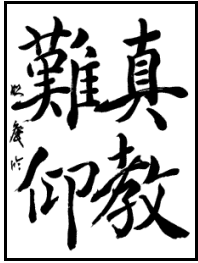 真教
難仰